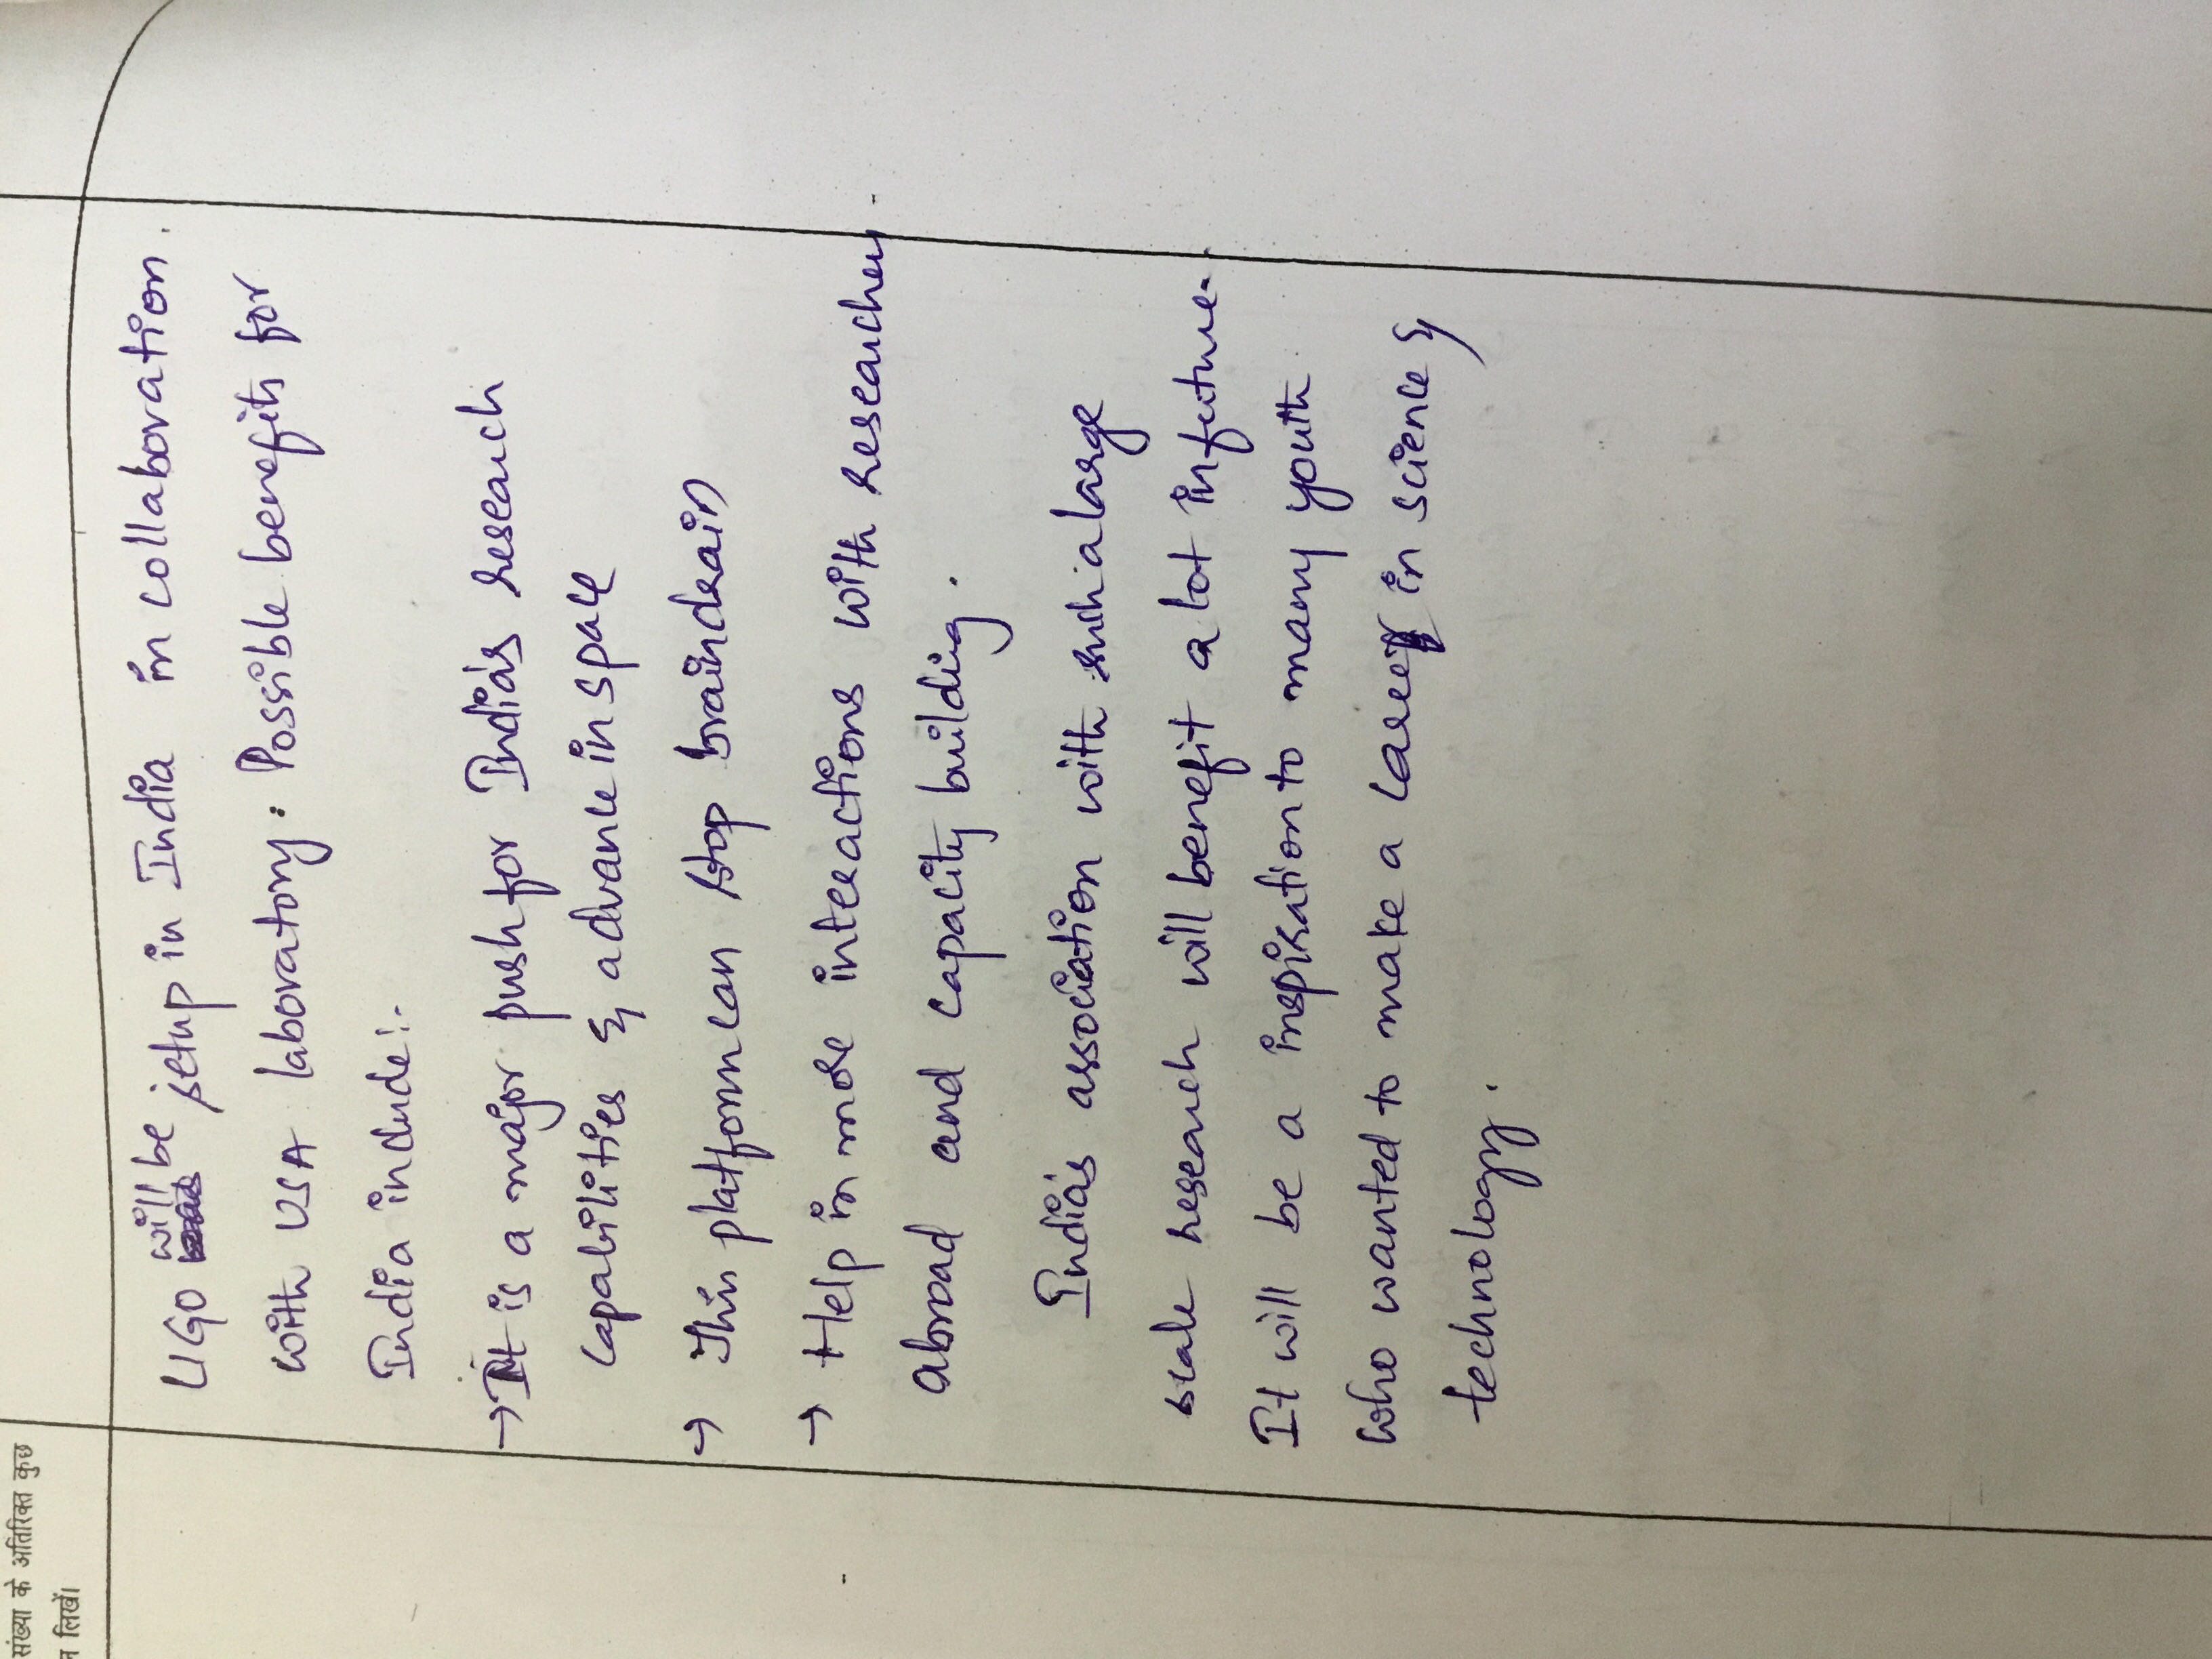 संख्या के अतिरिक्त कुछ
न लिखें।
LIGO will be setup in India in collaboration.
with USA laboratory. Possible benefits for
India include:-
→ It is a major push for India's research
capabilities & advance in space
→ This platform can stop braindrain
→ Help in more interactions with researchers.
abroad and capacity building.
India's association with such a large
scale research will benefit a lot in future.
It will be a inspiration to many youth
who wanted to make a career in science &
technology.